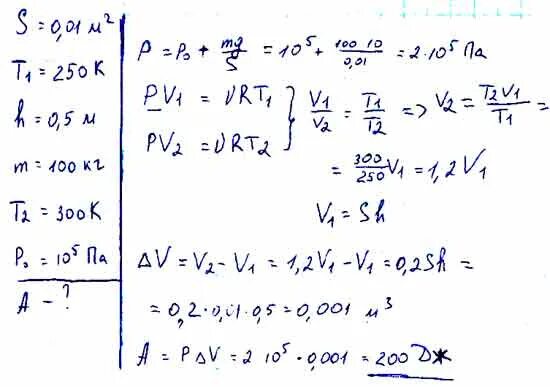 S = 0,01 м²
T₁ = 250 К
h = 0,5 м
m = 100 кг
T₂ = 300К
P₀ = 10⁵ Па
A – ?
P = P₀ + mg/S = 10⁵ + 100·10/0,01 = 2·10⁵ Па
PV₁ = νRT₁ } V₁/V₂ = T₁/T₂ => V₂ = T₂V₁/T₁ =
PV₂ = νRT₂
= 300/250 V₁ = 1,2V₁
V₁ = Sh
ΔV = V₂ – V₁ = 1,2V₁ – V₁ = 0,2Sh =
= 0,2·0,01·0,5 = 0,001 м³
A = PΔV = 2 10⁵·0,001 = 200 Дж